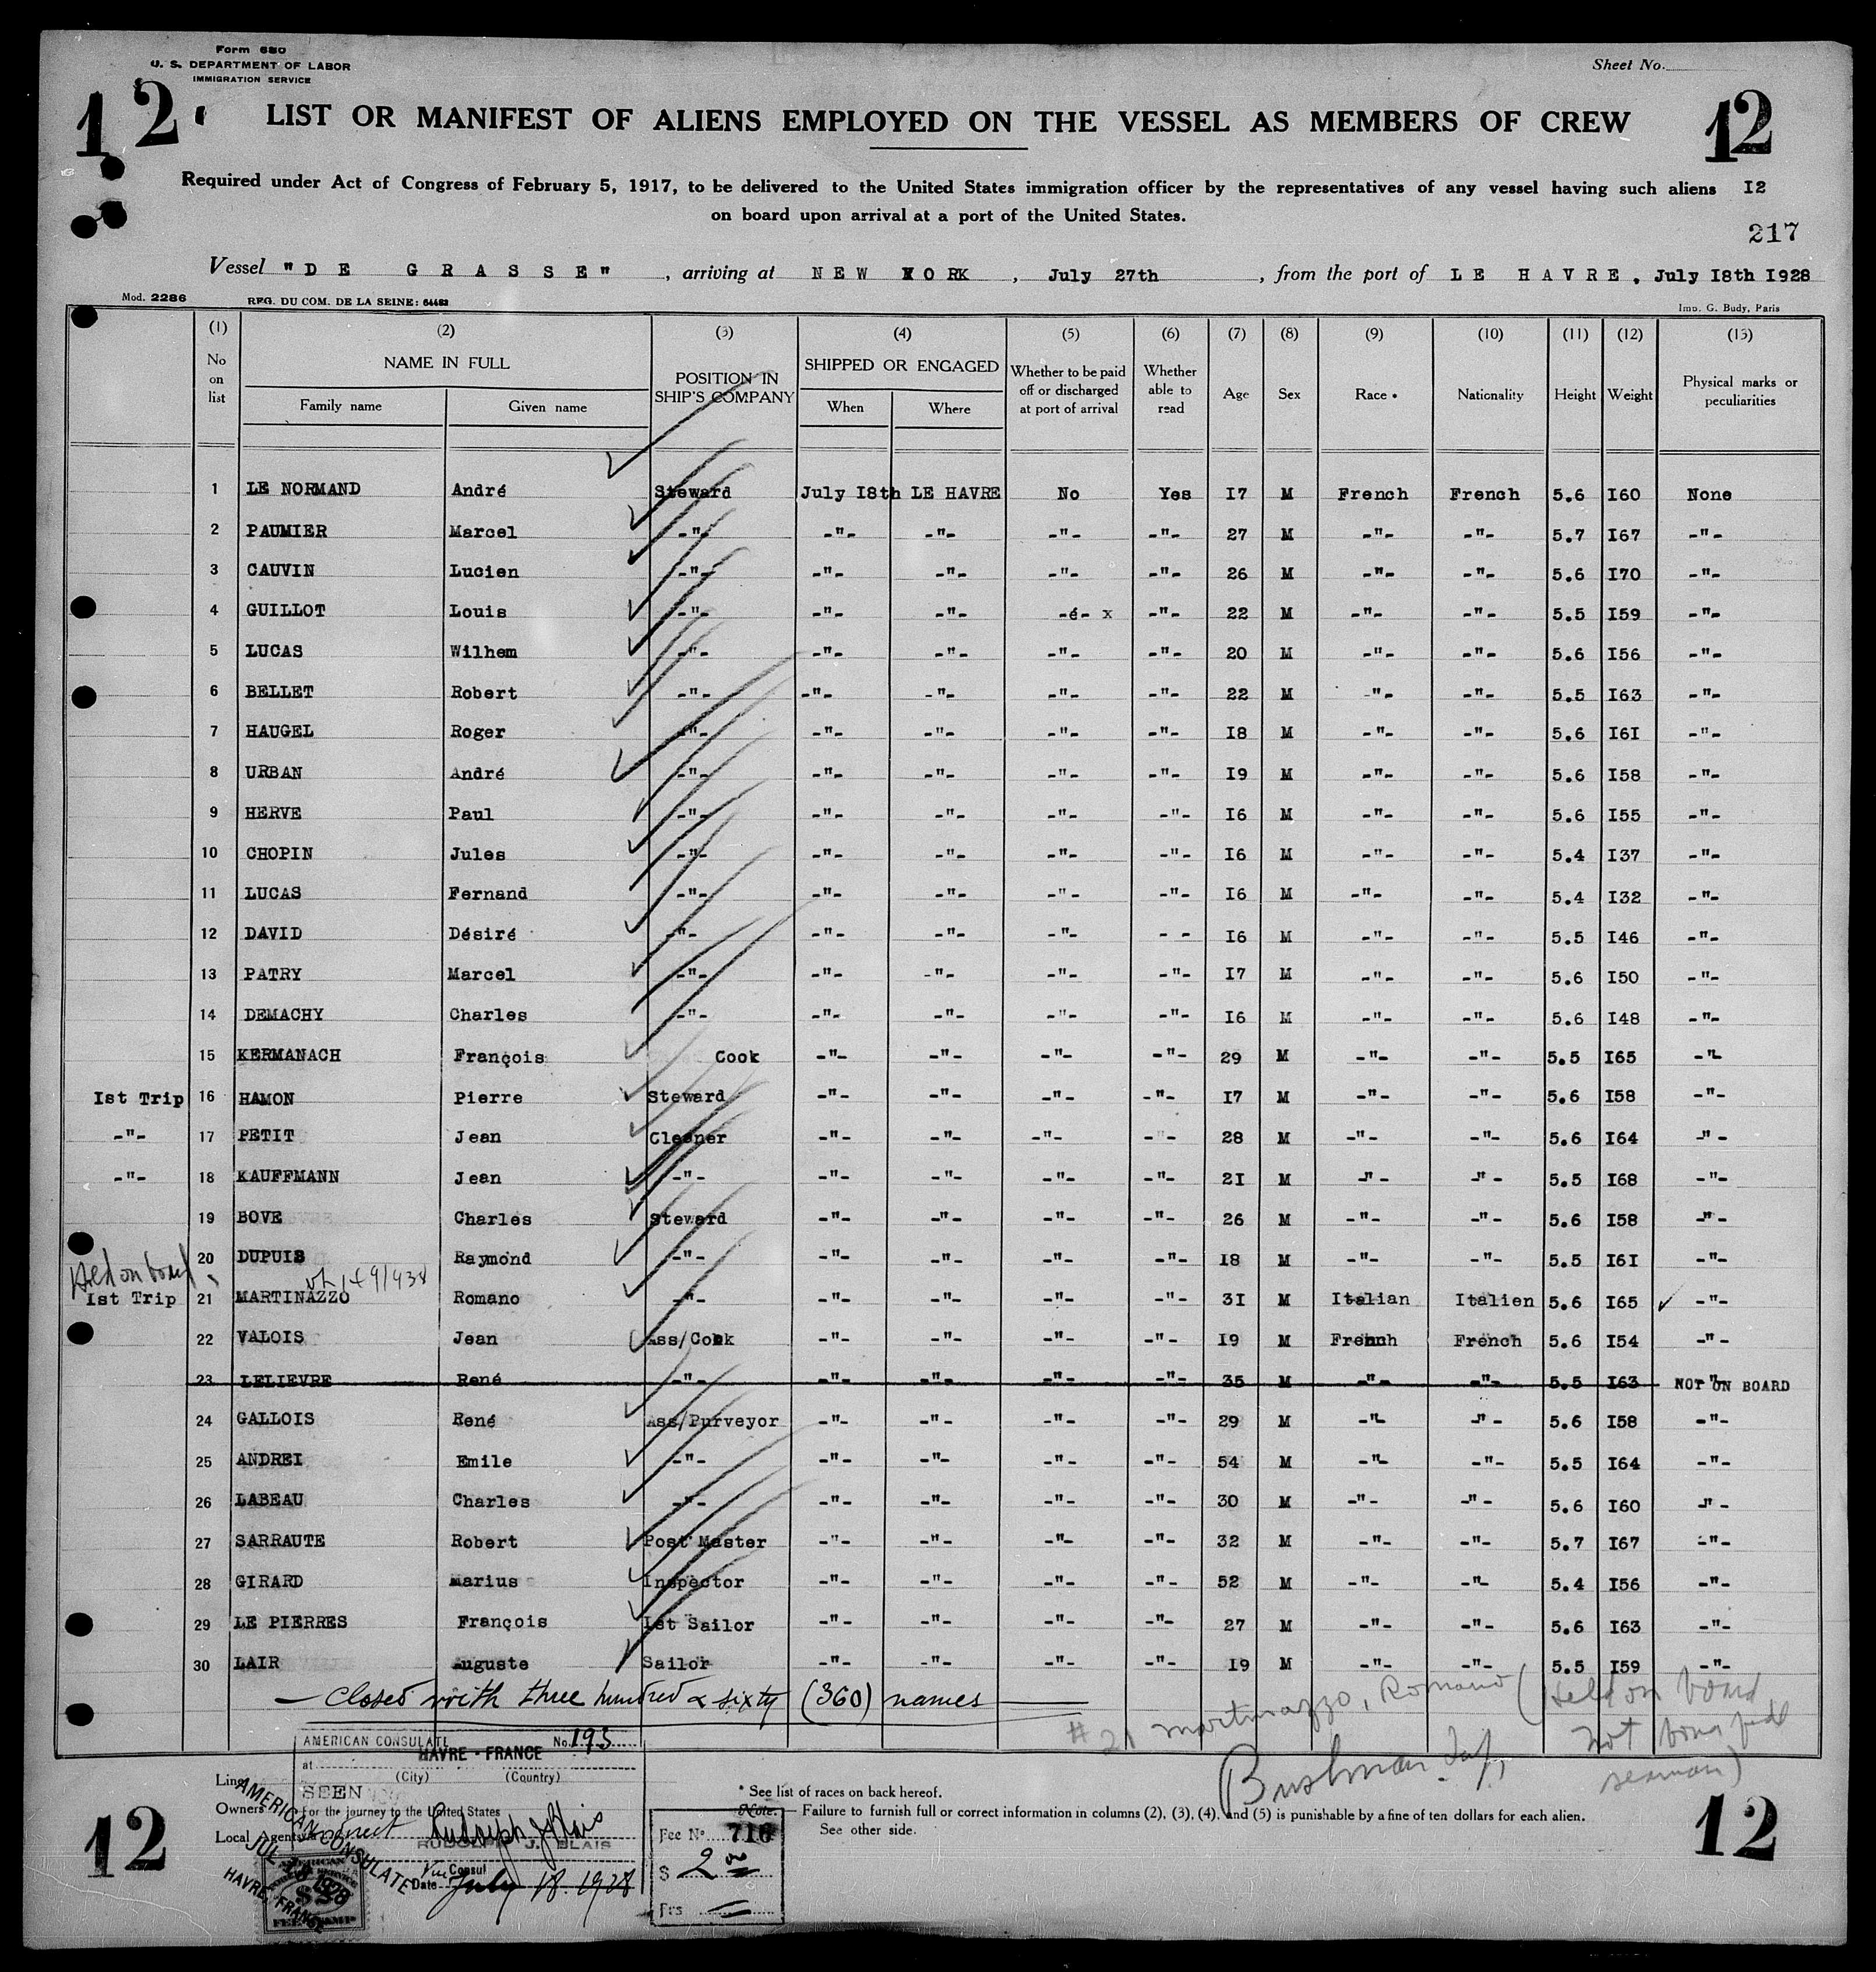 Form 680
U. S. DEPARTMENT OF LABOR
IMMIGRATION SERVICE
Sheet No.
12
12
LIST OR MANIFEST OF ALIENS EMPLOYED ON THE VESSEL AS MEMBERS OF CREW
Required under Act of Congress of February 5, 1917, to be delivered to the United States immigration officer by the representatives of any vessel having such aliens I2
on board upon arrival at a port of the United States.
217
Vessel "DE GRASSE", arriving at NEW YORK, July 27th, from the port of LE HAVRE, July I8th I928
Mod. 2286 REG. DU COM. DE LA SEINE: 64483 Imp. G. Budy, Paris
(1) (2) (3) (4) (5) (6) (7) (8) (9) (10) (11) (12) (13)
No on list NAME IN FULL Family name Given name POSITION IN SHIP'S COMPANY SHIPPED OR ENGAGED When Where Whether to be paid off or discharged at port of arrival Whether able to read Age Sex Race * Nationality Height Weight Physical marks or peculiarities
1 LE NORMAND André Steward July I8th LE HAVRE No Yes I7 M French French 5.6 I60 None
2 PAUMIER Marcel -"- -"- -"- -"- -"- 27 M -"- -"- 5.7 I67 -"-
3 CAUVIN Lucien -"- -"- -"- -"- -"- 26 M -"- -"- 5.6 I70 -"-
4 GUILLOT Louis -"- -"- -"- -é- x -"- 22 M -"- -"- 5.5 I59 -"-
5 LUCAS Wilhem -"- -"- -"- -"- -"- 20 M -"- -"- 5.6 I56 -"-
6 BELLET Robert -"- -"- -"- -"- -"- 22 M -"- -"- 5.5 I63 -"-
7 HAUGEL Roger -"- -"- -"- -"- -"- I8 M -"- -"- 5.6 I6I -"-
8 URBAN André -"- -"- -"- -"- -"- I9 M -"- -"- 5.6 I58 -"-
9 HERVE Paul -"- -"- -"- -"- -"- I6 M -"- -"- 5.6 I55 -"-
10 CHOPIN Jules -"- -"- -"- -"- -"- I6 M -"- -"- 5.4 I37 -"-
11 LUCAS Fernand -"- -"- -"- -"- -"- I6 M -"- -"- 5.4 I32 -"-
12 DAVID Désiré -"- -"- -"- -"- - - I6 M -"- -"- 5.5 I46 -"-
13 PATRY Marcel -"- -"- -"- -"- -"- I7 M -"- -"- 5.6 I50 -"-
14 DEMACHY Charles -"- -"- -"- -"- -"- I6 M -"- -"- 5.6 I48 -"-
15 KERMANACH François Cook -"- -"- -"- -"- 29 M -"- -"- 5.5 I65 -"-
Ist Trip 16 HAMON Pierre Steward -"- -"- -"- -"- I7 M -"- -"- 5.6 I58 -"-
-"- 17 PETIT Jean Cleaner -"- -"- -"- -"- 28 M -"- -"- 5.6 I64 -"-
-"- 18 KAUFFMANN Jean -"- -"- -"- -"- -"- 2I M -"- -"- 5.5 I68 -"-
19 BOVE Charles Steward -"- -"- -"- -"- 26 M -"- -"- 5.6 I58 -"-
20 DUPUIS Raymond -"- -"- -"- -"- -"- I8 M -"- -"- 5.5 I6I -"-
Held on board
Ist Trip 21 MARTINAZZO Romano -"- -"- -"- -"- -"- 3I M Italian Italien 5.6 I65 -"-
22 VALOIS Jean Ass/Cook -"- -"- -"- -"- I9 M French French 5.6 I54 -"-
23 LELIEVRE René -"- -"- -"- -"- -"- 35 M -"- -"- 5.5 I63 -"- NOT ON BOARD
24 GALLOIS René Ass/Purveyor -"- -"- -"- -"- 29 M -"- -"- 5.6 I58 -"-
25 ANDREI Emile -"- -"- -"- -"- -"- 54 M -"- -"- 5.5 I64 -"-
26 LABEAU Charles -"- -"- -"- -"- -"- 30 M -"- -"- 5.6 I60 -"-
27 SARRAUTE Robert Post Master -"- -"- -"- -"- 32 M -"- -"- 5.7 I67 -"-
28 GIRARD Marius Inspector -"- -"- -"- -"- 52 M -"- -"- 5.4 I56 -"-
29 LE PIERRES François Ist Sailor -"- -"- -"- -"- 27 M -"- -"- 5.6 I63 -"-
30 LAIR Auguste Sailor -"- -"- -"- -"- I9 M -"- -"- 5.5 I59 -"-
— Closed with three hundred & sixty (360) names —
# 21 Martinazzo, Romano (Held on board
not bona fide
seaman)
Bushman Insp.
AMERICAN CONSULATE No. 193
at HAVRE - FRANCE
(City) (Country)
SEEN
For the journey to the United States
Line
Owners
Local Agents
Rudolph J Blais
RUDOLPH J. BLAIS
Vice Consul
Date July 18. 1928
AMERICAN CONSULATE
JUL 18 1928
HAVRE, FRANCE
FEE STAMP
Fee No. 716
$ 2 00
Frs
* See list of races on back hereof.
Note. — Failure to furnish full or correct information in columns (2), (3), (4), and (5) is punishable by a fine of ten dollars for each alien.
See other side.
12
12